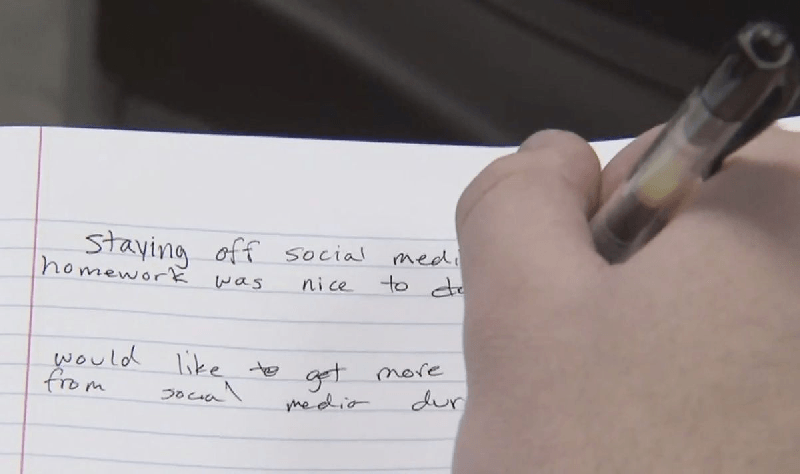 Staying off social medi
homework was nice to do
would like to get more
from social media dur